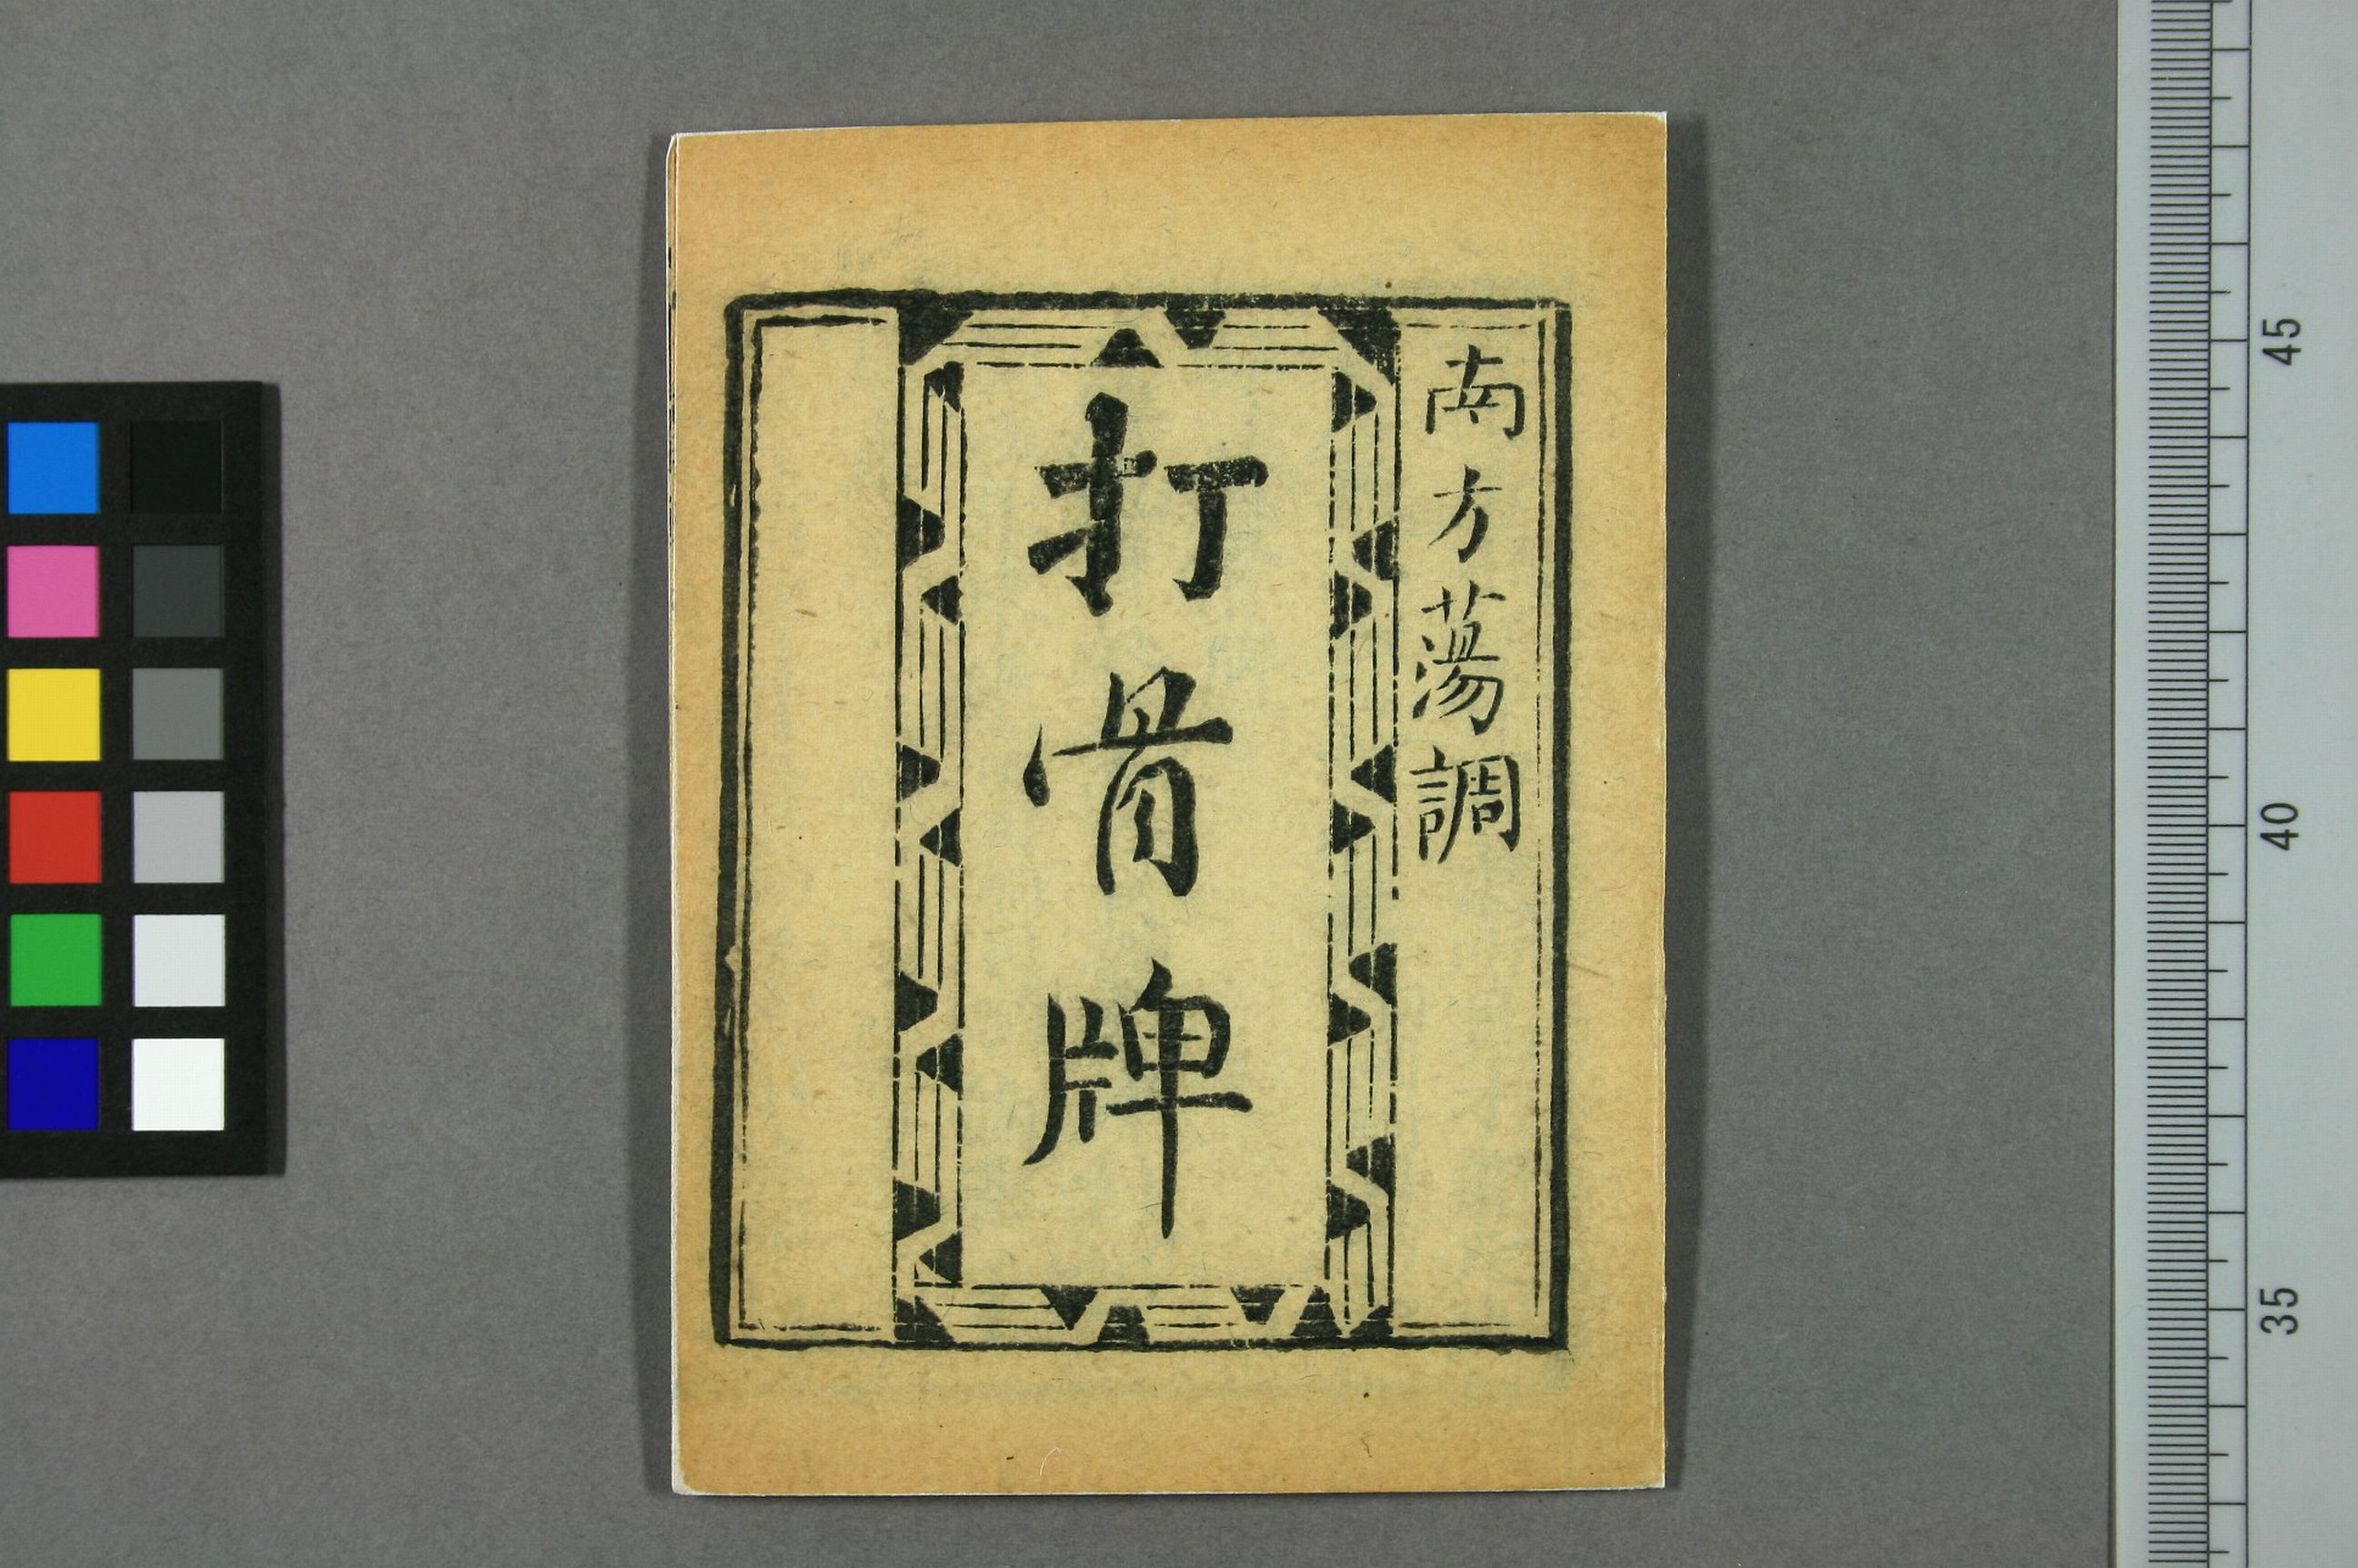 南方蕩調
打骨牌
45
40
35